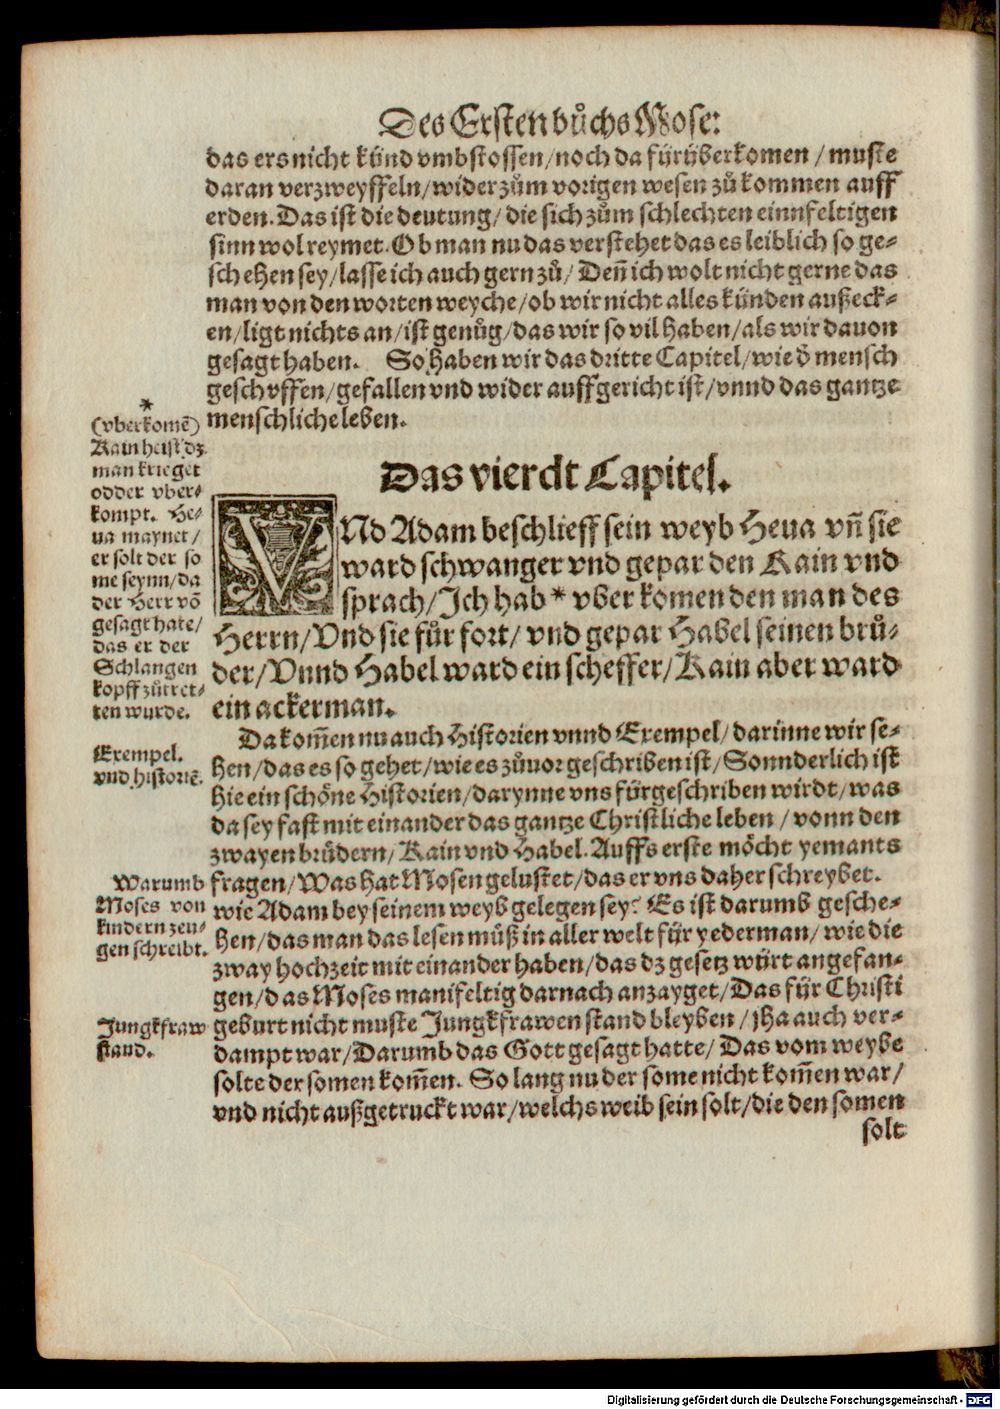 Des Ersten bůchs Mose:
das ers nicht künd vmbstossen/noch da fürüberkomen / muste
daran verzweyffeln/wider zům vorigen wesen zů kommen auff
erden. Das ist die deutung/ die sich zům schlechten einnfeltigen
sinn wol reymet. Ob man nu das verstehet das es leiblich so ge-
schehen sey/lasse ich auch gern zů/ Deñ ich wolt nicht gerne das
man von den worten weyche/ob wir nicht alles künden außeck-
en/ligt nichts an/ist genůg/das wir so vil haben/als wir dauon
gesagt haben. So haben wir das dritte Capitel/wie d̕ mensch
geschvffen/gefallen vnd wider auffgericht ist/vnnd das gantze
menschliche leben.
*
(vberkomē)
Kain heist dz
man krieget
odder vber-
kompt. He-
ua maynet/
er solt der so
me seynn/da
der Herr võ
gesagt hate/
das er der
Schlangen
kopff zůtret-
ten wurde.
Das vierdt Capitel.
VNd Adam beschlieff sein weyb Heua vñ sie
ward schwanger vnd gepar den Kain vnd
sprach/Ich hab * vberkomen den man des
Herrn/Vnd sie für fort/ vnd gepar Habel seinen brů-
der/Vnnd Habel ward ein scheffer/Kain aber ward
ein ackerman.
Exempel.
vnd historiē.
Da kom̃en nu auch Historien vnnd Exempel/darinne wir se-
hen/das es so gehet/wie es zůuor geschriben ist/Sonnderlich ist
hie ein schöne Historien/darynne vns fürgeschriben wirdt/was
da sey fast mit einander das gantze Christliche leben / vonn den
zwayen brüdern/Kain vnd Habel. Auffs erste möcht yemants
Warumb
Moses von
kindern zeu-
gen schreibt.
fragen/Was hat Mosen gelustet/das er vns daher schreybet.
wie Adam bey seinem weyb gelegen sey? Es ist darumb gesche-
hen/das man das lesen můß in aller welt für yederman/wie die
zway hochzeit mit einander haben/das dz gesetz würt angefan-
gen/das Moses manifeltig darnach anzayget/Das für Christi
Jungkfraw
stand.
geburt nicht muste Jungkfrawen stand bleyben /jha auch ver-
dampt war/Darumb das Gott gesagt hatte/ Das vom weybe
solte der somen kom̃en. So lang nu der some nicht kom̃en war/
vnd nicht außgetruckt war/welchs weib sein solt/die den somen
solt
Digitalisierung gefördert durch die Deutsche Forschungsgemeinschaft - DFG